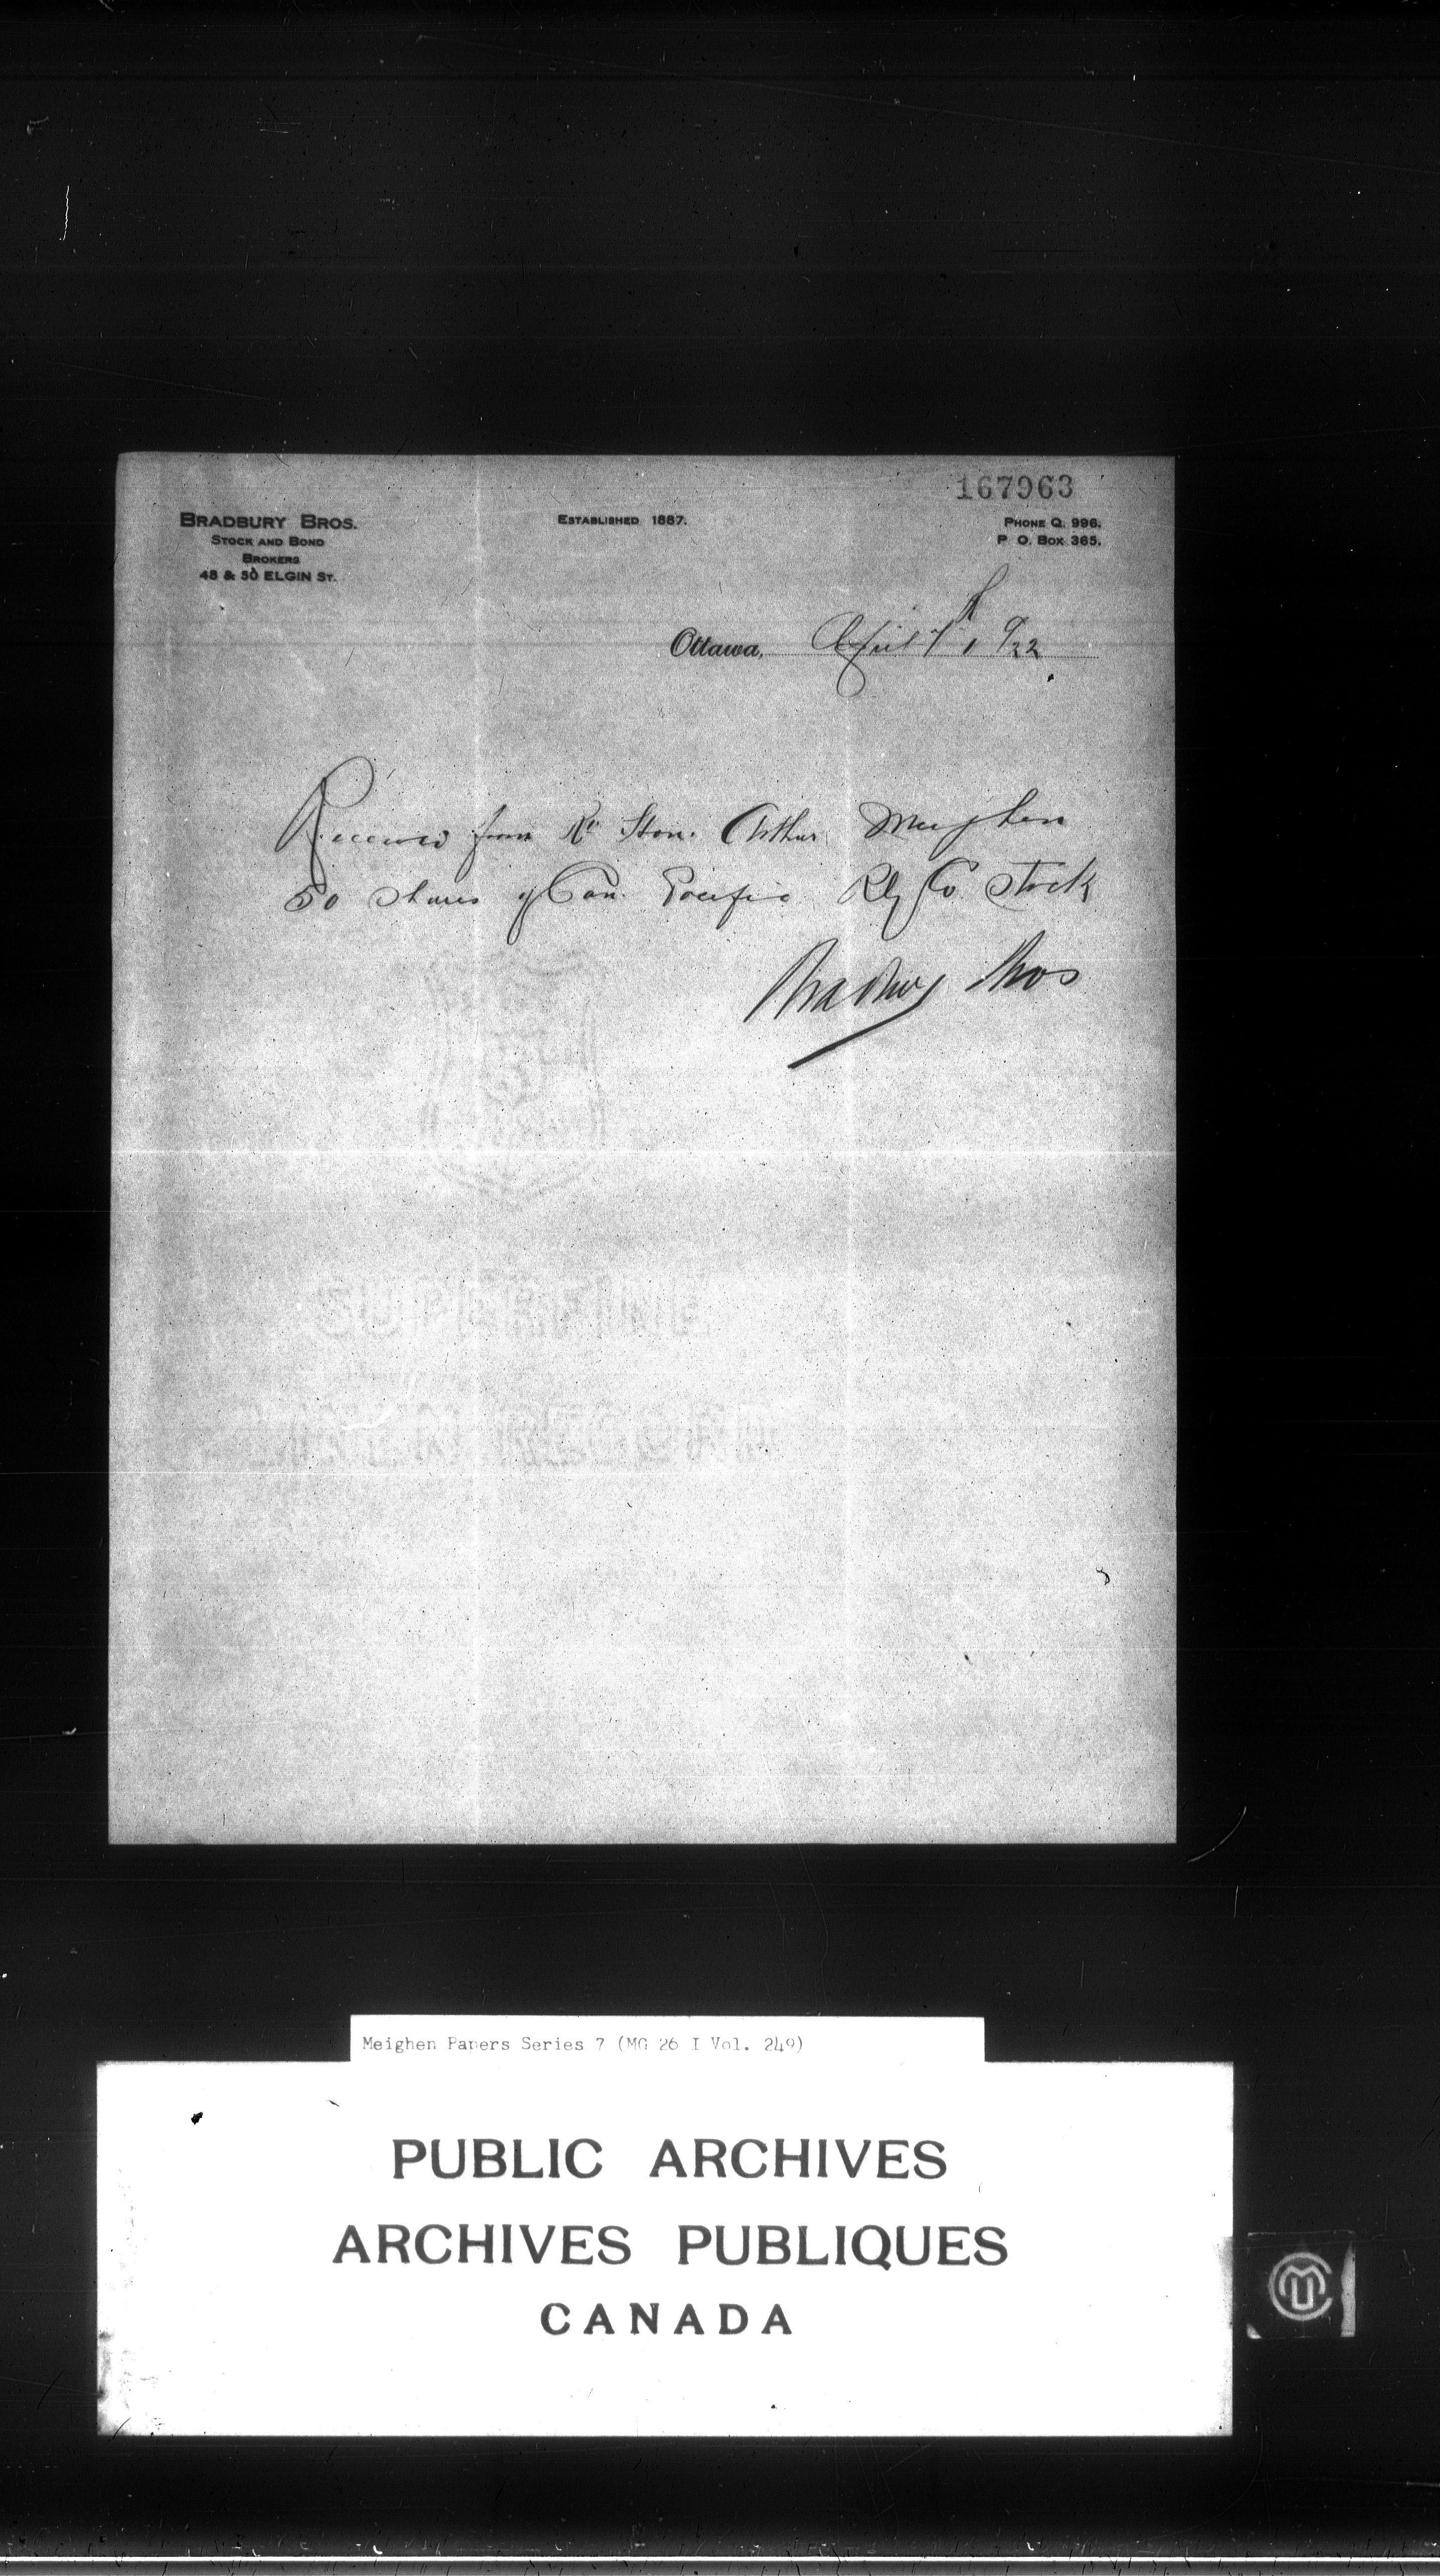 167963
BRADBURY BROS.
STOCK AND BOND
BROKERS
48 & 50 ELGIN ST.
ESTABLISHED 1887.
PHONE Q. 996.
P. O. BOX 365.
Ottawa, April 7th 1922
Received from Rt Hon. Arthur Meighen
50 shares of Can. Pacific Rly Co. Stock
Bradbury Bros
SUPERFINE
Meighen Papers Series 7 (MG 26 I Vol. 249)
PUBLIC ARCHIVES
ARCHIVES PUBLIQUES
CANADA